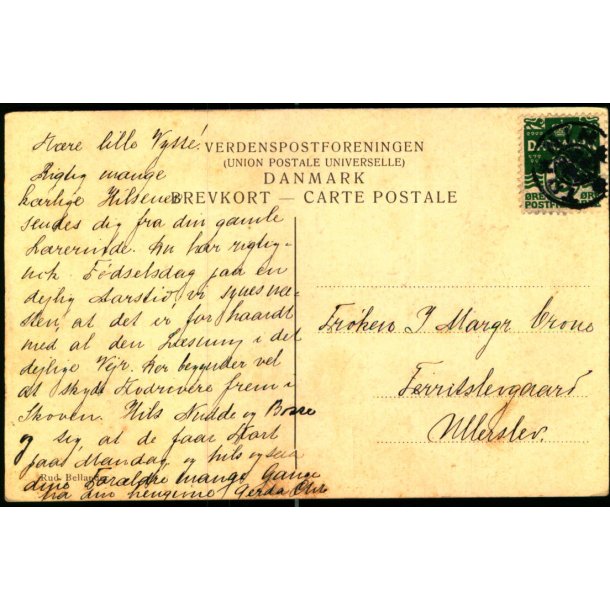 VERDENSPOSTFORENINGEN
(UNION POSTALE UNIVERSELLE)
DANMARK
BREVKORT — CARTE POSTALE
Kære lille Vysse!
Rigtig mange
kærlige Hilsener
sendes dig fra din gamle
Lærerinde. Du har rigtig-
nok Fødselsdag paa en
dejlig Aarstid, vi synes næ-
sten, at det er for haardt
med al den Læsning i det
dejlige Vejr. Her begynder vel
at skyde Hvidvere frem i
Skoven. Hils Nudde og Bosse
og sig, at de faar Kort
paa Mandag og hils ogsaa
dine Forældre mange Gange
fra din hengivne Gerda
Rud. Bellan
Frøken J Margr Crone
Ferritslevgaard
Ullerslev.